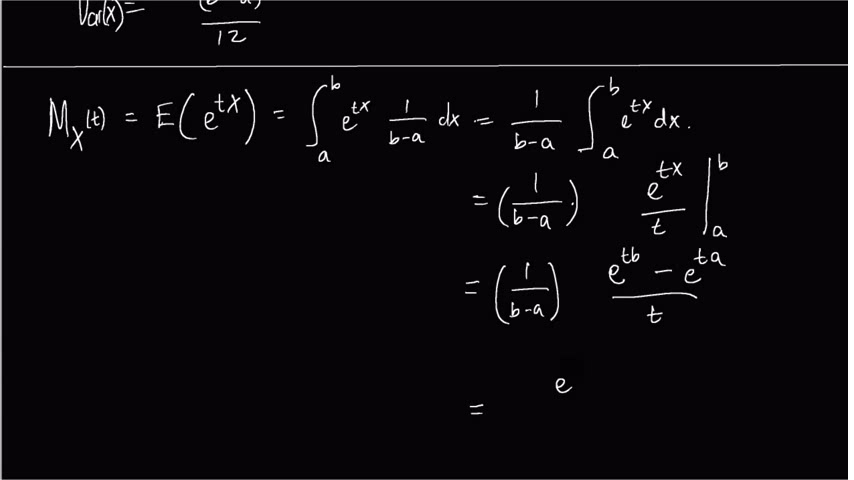 Var(x) = (b-a)² / 12
M_X(t) = E(e^{tX}) = ∫_a^b e^{tx} 1/(b-a) dx = 1/(b-a) ∫_a^b e^{tx} dx.
= (1/(b-a)) · e^{tx}/t |_a^b
= (1/(b-a)) (e^{tb} - e^{ta})/t
= e